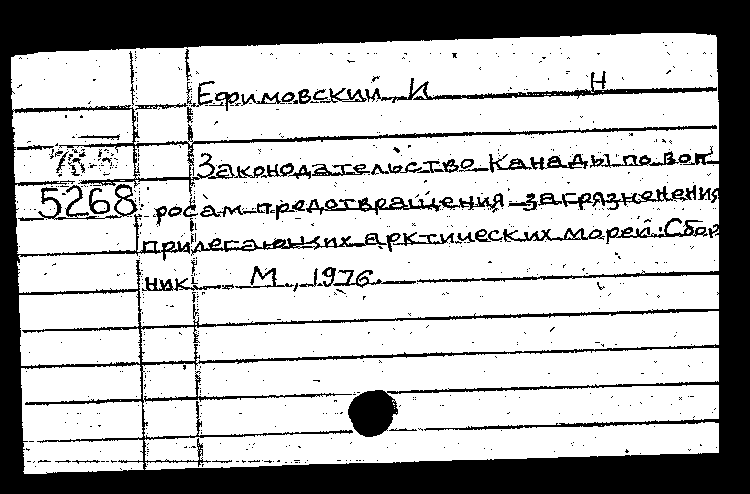 Ефимовский, И Н
Законодательство Канады по воп
5268 росам предотвращения загрязненения
прилегающих арктических морей: Сбор
ник. М., 1976.